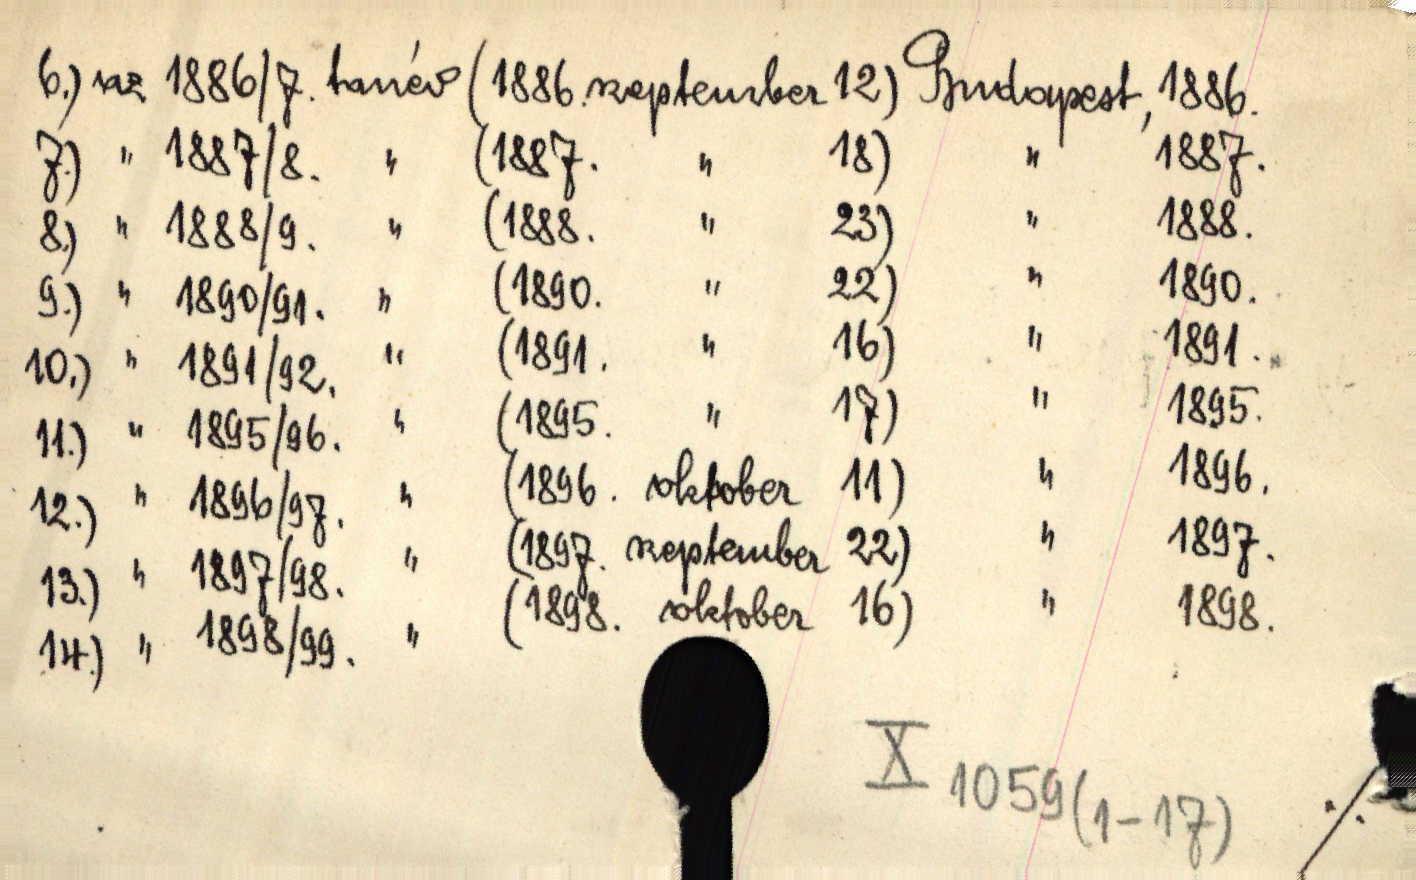 6.) az 1886/7. tanév (1886. szeptember 12) Budapest, 1886.
7.) " 1887/8. " (1887. " 18) " 1887.
8.) " 1888/9. " (1888. " 23) " 1888.
9.) " 1890/91. " (1890. " 22) " 1890.
10.) " 1891/92. " (1891. " 16) " 1891.
11.) " 1895/96. " (1895. " 17) " 1895.
12.) " 1896/97. " (1896. oktober 11) " 1896.
13.) " 1897/98. " (1897. szeptember 22) " 1897.
14.) " 1898/99. " (1898. oktober 16) " 1898.
X 1059 (1-17)